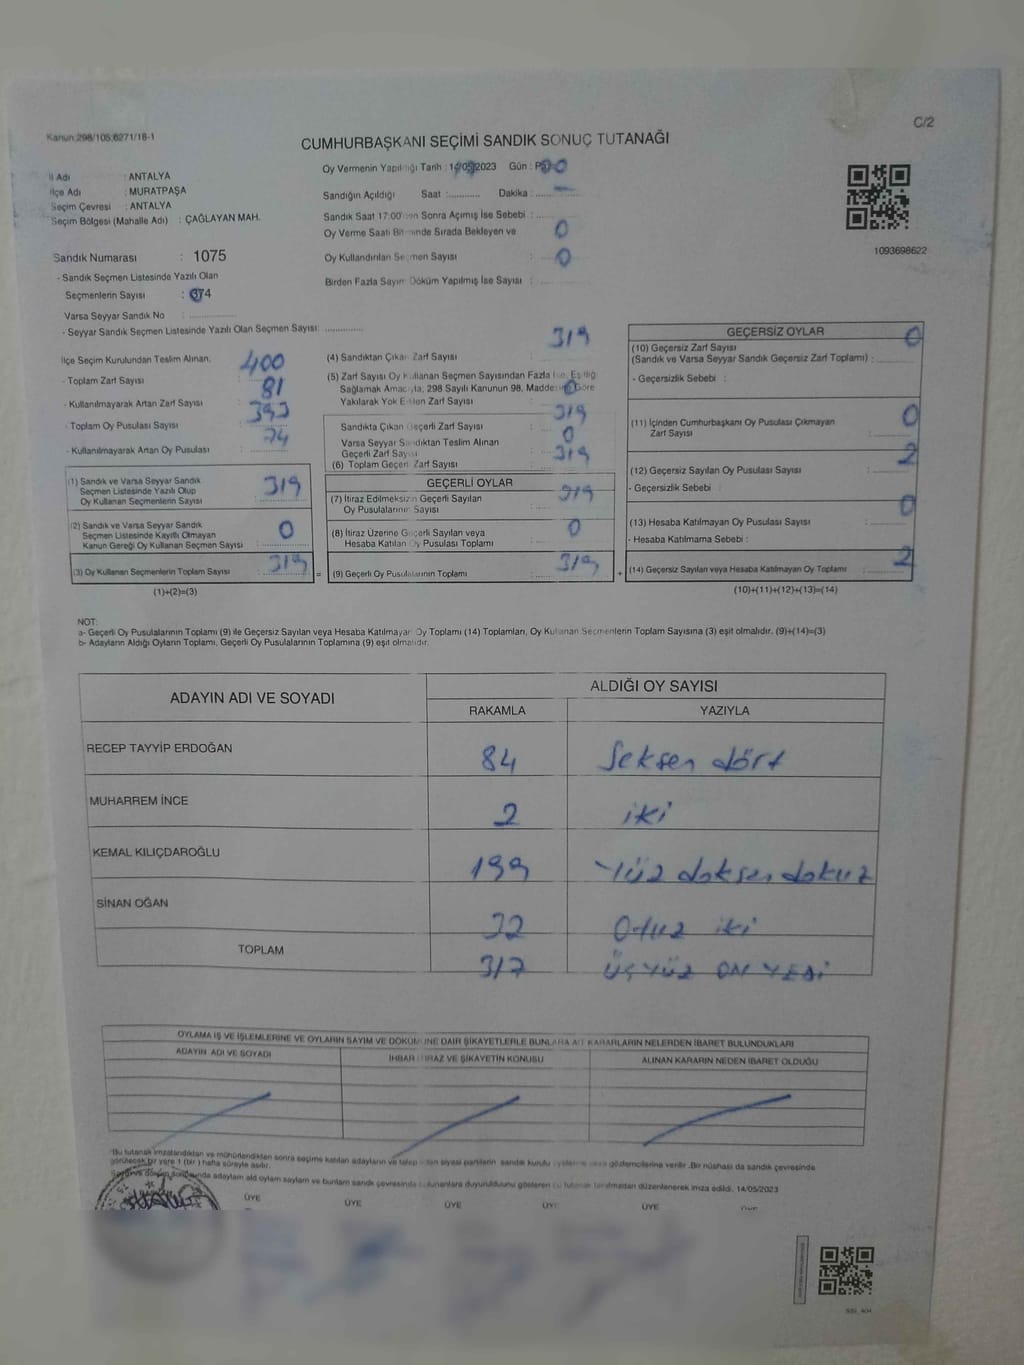 Kanun:298/105;6271/18-1
C/2
CUMHURBAŞKANI SEÇİMİ SANDIK SONUÇ TUTANAĞI
İl Adı : ANTALYA
İlçe Adı : MURATPAŞA
Seçim Çevresi : ANTALYA
Seçim Bölgesi (Mahalle Adı) : ÇAĞLAYAN MAH.
Sandık Numarası : 1075
- Sandık Seçmen Listesinde Yazılı Olan
Seçmenlerin Sayısı : 374
Varsa Seyyar Sandık No :
- Seyyar Sandık Seçmen Listesinde Yazılı Olan Seçmen Sayısı:
Oy Vermenin Yapıldığı Tarih : 14/05/2023 Gün :
Sandığın Açıldığı Saat : Dakika :
Sandık Saat 17:00'den Sonra Açılmış İse Sebebi :
Oy Verme Saati Bitiminde Sırada Bekleyen ve 0
Oy Kullandırılan Seçmen Sayısı : 0
Birden Fazla Sayım Döküm Yapılmış İse Sayısı :
1093698622
İlçe Seçim Kurulundan Teslim Alınan.
- Toplam Zarf Sayısı : 400
- Kullanılmayarak Artan Zarf Sayısı : 81
- Toplam Oy Pusulası Sayısı : 393
- Kullanılmayarak Artan Oy Pusulası : 74
(1) Sandık ve Varsa Seyyar Sandık
Seçmen Listesinde Yazılı Olup
Oy Kullanan Seçmenlerin Sayısı : 319
(2) Sandık ve Varsa Seyyar Sandık
Seçmen Listesinde Kayıtlı Olmayan
Kanun Gereği Oy Kullanan Seçmen Sayısı : 0
(3) Oy Kullanan Seçmenlerin Toplam Sayısı : 319
(1)+(2)=(3)
(4) Sandıktan Çıkan Zarf Sayısı : 319
(5) Zarf Sayısı Oy Kullanan Seçmen Sayısından Fazla İse, Eşitliği
Sağlamak Amacıyla, 298 Sayılı Kanunun 98. Maddesine Göre
Yakılarak Yok Edilen Zarf Sayısı : 0
Sandıkta Çıkan Geçerli Zarf Sayısı : 319
Varsa Seyyar Sandıktan Teslim Alınan
Geçerli Zarf Sayısı : 0
(6) Toplam Geçerli Zarf Sayısı : 319
GEÇERLİ OYLAR
(7) İtiraz Edilmeksizin Geçerli Sayılan
Oy Pusulalarının Sayısı : 319
(8) İtiraz Üzerine Geçerli Sayılan veya
Hesaba Katılan Oy Pusulası Toplamı : 0
= (9) Geçerli Oy Pusulalarının Toplamı : 319
GEÇERSİZ OYLAR
(10) Geçersiz Zarf Sayısı
(Sandık ve Varsa Seyyar Sandık Geçersiz Zarf Toplamı) : 0
- Geçersizlik Sebebi :
(11) İçinden Cumhurbaşkanı Oy Pusulası Çıkmayan
Zarf Sayısı : 0
(12) Geçersiz Sayılan Oy Pusulası Sayısı : 2
- Geçersizlik Sebebi :
(13) Hesaba Katılmayan Oy Pusulası Sayısı : 0
- Hesaba Katılmama Sebebi :
+ (14) Geçersiz Sayılan veya Hesaba Katılmayan Oy Toplamı : 2
(10)+(11)+(12)+(13)=(14)
NOT:
a- Geçerli Oy Pusulalarının Toplamı (9) ile Geçersiz Sayılan veya Hesaba Katılmayan Oy Toplamı (14) Toplamları, Oy Kullanan Seçmenlerin Toplam Sayısına (3) eşit olmalıdır. (9)+(14)=(3)
b- Adayların Aldığı Oyların Toplamı, Geçerli Oy Pusulalarının Toplamına (9) eşit olmalıdır.
ADAYIN ADI VE SOYADI ALDIĞI OY SAYISI
RAKAMLA YAZIYLA
RECEP TAYYİP ERDOĞAN 84 Seksen dört
MUHARREM İNCE 2 iki
KEMAL KILIÇDAROĞLU 199 Yüz doksen dokuz
SİNAN OĞAN 32 Otuz iki
TOPLAM 317 ÜÇYÜZ ON YEDİ
OYLAMA İŞ VE İŞLEMLERİNE VE OYLARIN SAYIM VE DÖKÜMÜNE DAİR ŞİKAYETLERLE BUNLARA AİT KARARLARIN NELERDEN İBARET BULUNDUKLARI
ADAYIN ADI VE SOYADI İHBAR İTİRAZ VE ŞİKAYETİN KONUSU ALINAN KARARIN NEDEN İBARET OLDUĞU
Bu tutanak imzalandıktan ve mühürlendikten sonra seçime katılan adayların ve talep eden siyasi partilerin sandık kurulu üyelerine veya gözlemcilerine verilir. Bir nüshası da sandık çevresinde
görülecek bir yere 1 (bir) hafta süreyle asılır.
14/05/2023
ÜYE ÜYE ÜYE ÜYE ÜYE